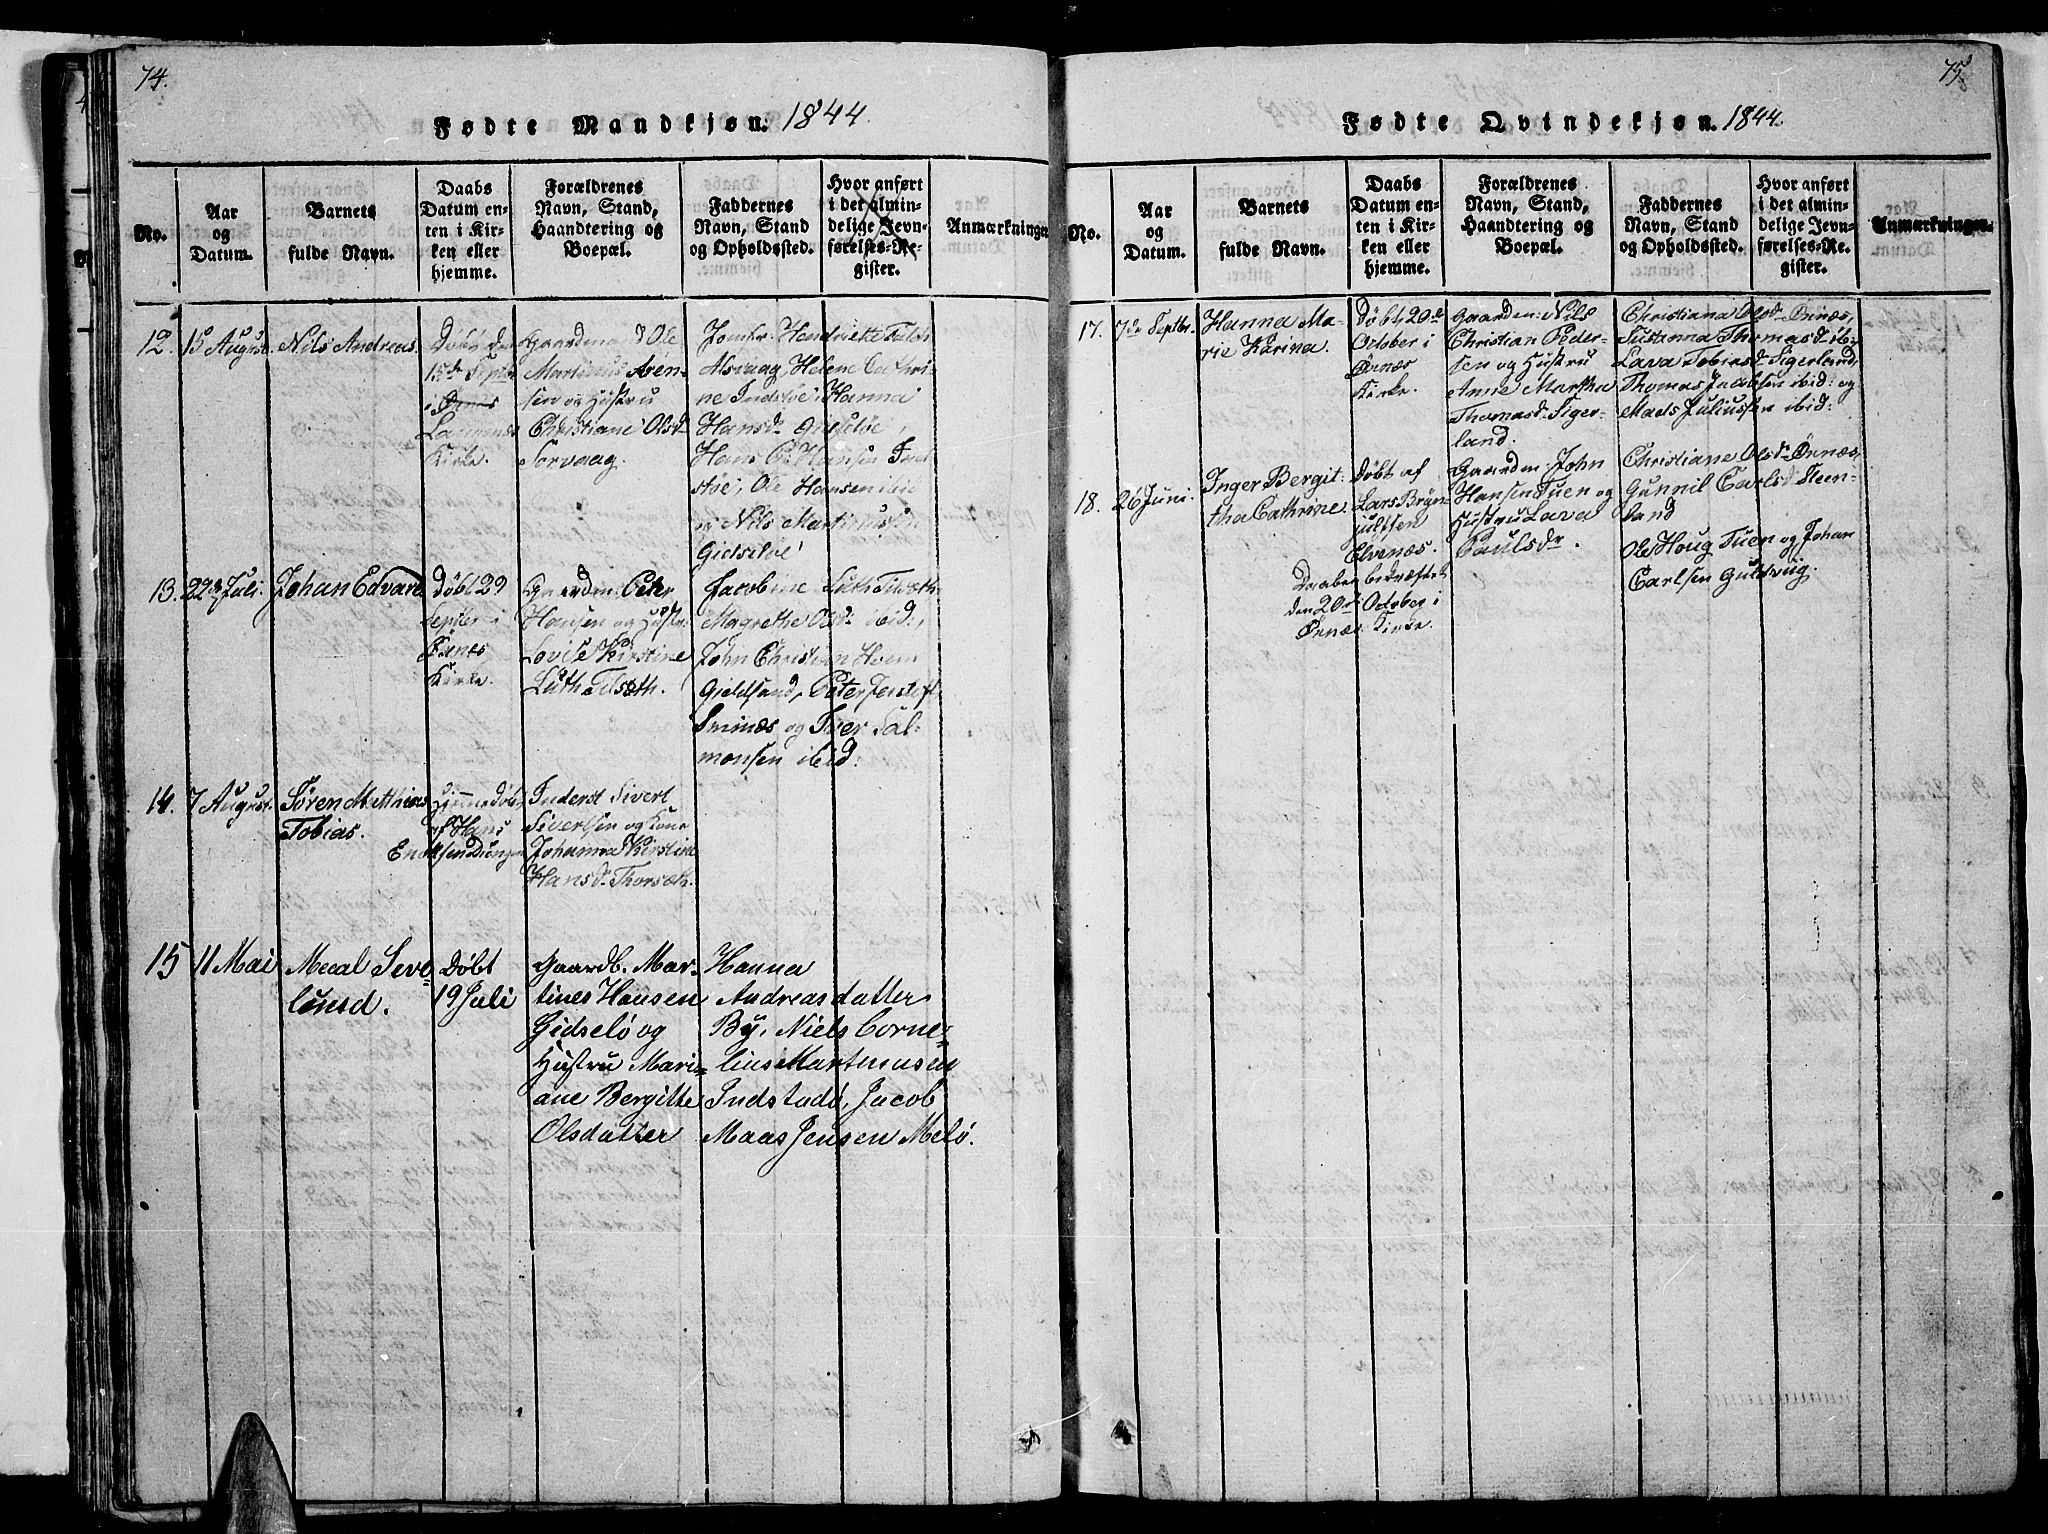 74.
Fødte Mandkjøn. 1844.
No.
Aar
og
Datum.
Barnets
fulde Navn.
Daabs
Datum en-
ten i Kir-
ken eller
hjemme.
Forældrenes
Navn, Stand,
Haandtering og
Boepæl.
Faddernes
Navn, Stand
og Opholdssted.
Hvor anført
i det almin-
delige Jevn-
førelses-Re-
gister.
Anmærkninger
12.
15 August.
Nils Andreas.
Døbt den
15de Septr
i Ørnes
Kirke.
Gaardmand Ole
Martinus Aren-
sen og Hustru
Christiane Olsd
Sorvaag.
Jomfr. Hendriette Falch
Alsvaag, Helene Cathri-
ne Indstøe, Hanna
Hansd. Gidseløe,
Hans P. Hansen Ind
støe, Ole Hansen ibid
og Nils Martinussen
Gidseløe
13.
22de Juli.
Johan Edvard
Døbt 29
Septer i
Ørnes
Kirke.
Gaardm. Peter
Hansen og Hustr.
Lovise Kirstine
Luth Tilsæth.
Jacobine Luth Tilsæth
Magrethe Olsd. ibid:,
John Christian
Gjeldsand, Peter
Smines og Iver Sal-
monsen ibid:
14.
7 August.
Søren Matthias
Tobias.
Hjemmedøbt
af Hans
Enoksen Dungen
Inderst Sivert
Sivertsen og Kone
Johanna Kirstine
Hansd. Thorsæth.
15
11 Mai
Mecal Seve-
lunsd.
Døbt
19 Juli
Gaardb. Mar-
tines Hansen
Gidselø og
Hustru Mari-
ane Bergitte
Olsdatter
Hanna
Andreasdatter
By, Niels Corne-
lius Martinusen
Indstadø, Jacob
Maas Jensen Melø.
75.
Fødte Qvindekjøn. 1844.
No.
Aar
og
Datum.
Barnets
fulde Navn.
Daabs
Datum en-
ten i Kir-
ken eller
hjemme.
Forældrenes
Navn, Stand,
Haandtering og
Boepæl.
Faddernes
Navn, Stand
og Opholdssted.
Hvor anført
i det almin-
delige Jevn-
førelses-Re-
gister.
Anmærkninger.
17.
7de Septbr.
Hanna Ma-
rie Karina.
Døbt 20de
October i
Ørnæs
Kirke
Gaardm: Nils
Christian Peder-
sen og Hustru
Anne Martha
Thomasd. Siger-
land.
Christiana Olsd. Ørnæs,
Susanna Thomasd. ib:
Lava Tobiasd. Sigerland,
Thomas Jacobsen ibid: og
Mads Juliussen ibid:
18.
26 Juni.
Inger Bergit-
tha Cathrine.
Døbt af
Lars Bryn-
julfsen
Elvenæs.
Daaben bedræftet
den 20de October i
Ørnæs Kirke.
Gaardm: John
Hansen Tuen og
Hustru Lava
Paulsdr.
Christiane Olsd. Ørnæs,
Gunnil Carlsd. Steen-
land
Ole Houg Tuen og Johan
Carlsen Guldvig.